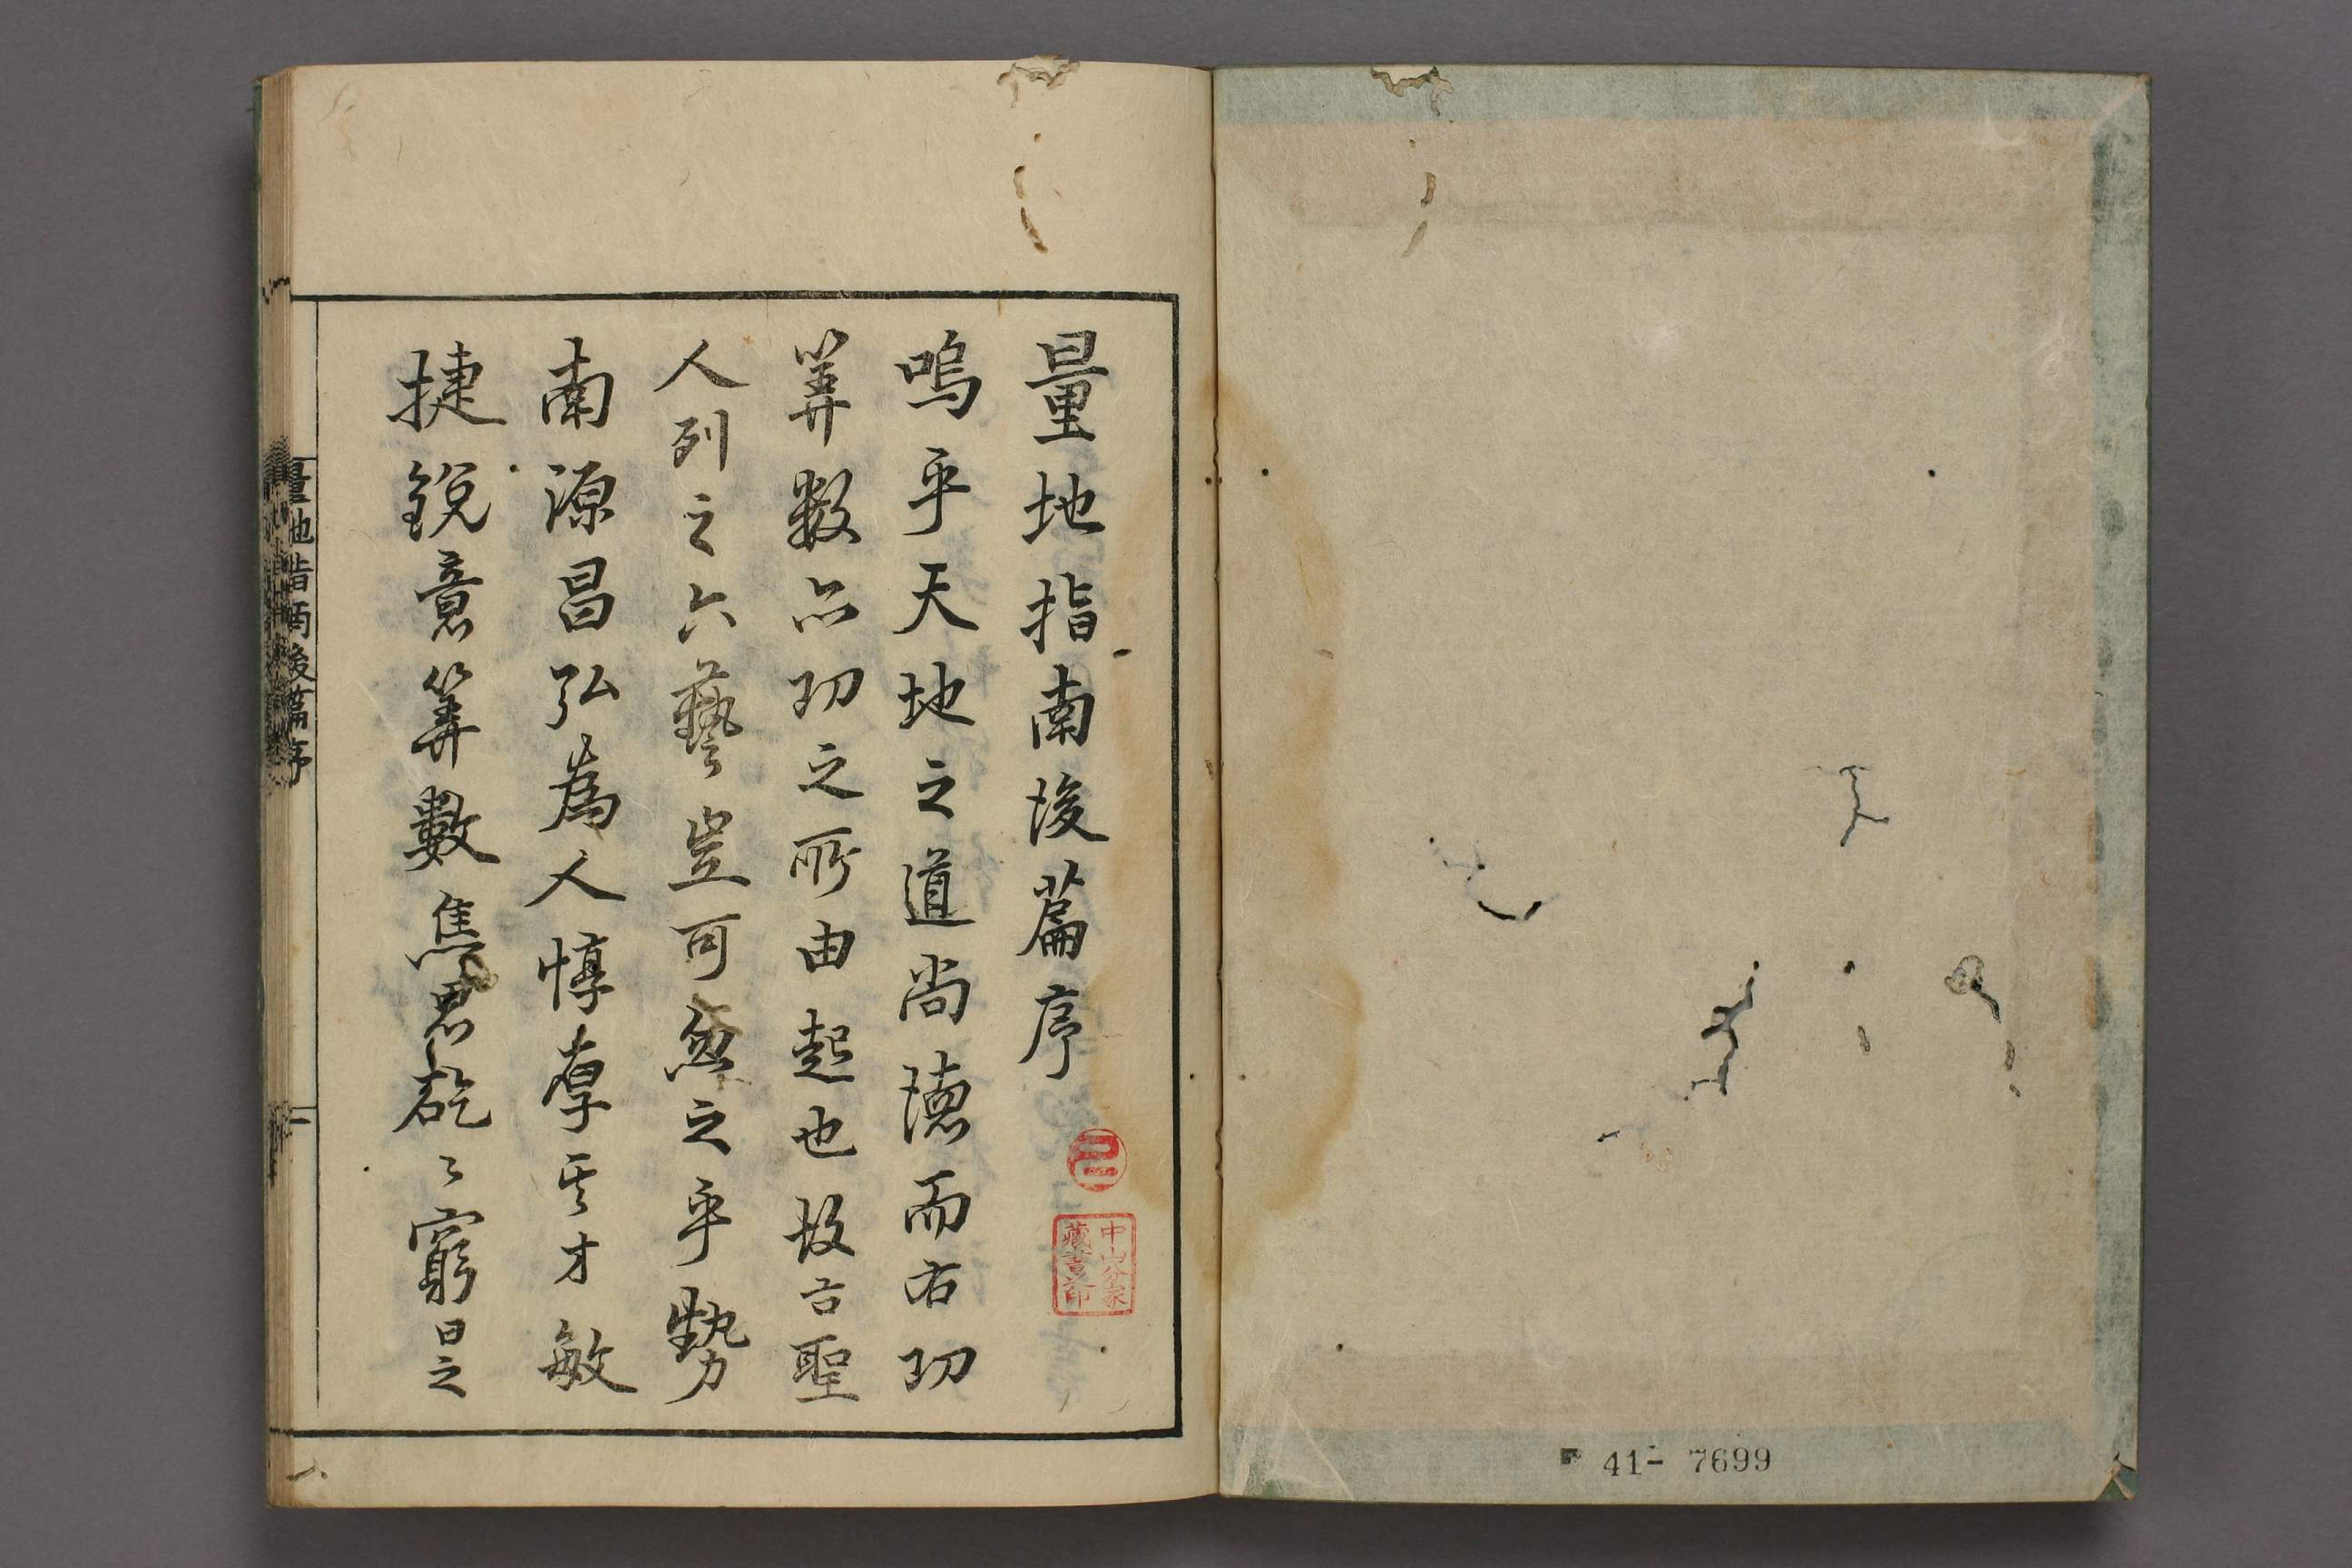 量地指南後篇序
嗚乎天地之道尚徳而右功
筭數亦功之所由起也故古聖
人列之六藝豈可忽之乎勢
南源昌弘為人惇厚其才敏
捷銳意筭數焦思矻〻窮日之
中山分家
藏書印
量地指南後篇序
一
41- 7699